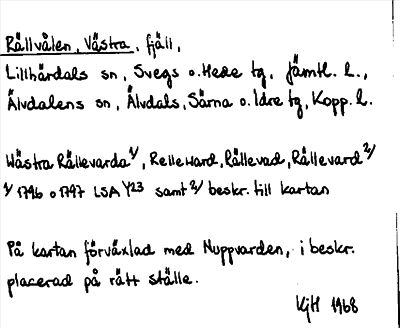 Rällvålen, Västra, fjäll,
Lillhärdals sn, Svegs o. Hede tg, Jämtl. l.,
Älvdalens sn, Älvdals, Särna o. Idre tg, Kopp. l.
Wästra Rällevarda 1/, Relleward, Rällevad, Rällevard 2/
1/ 1796 o 1797 LSA Y23 samt 2/ beskr. till kartan
På kartan förväxlad med Nuppvarden, i beskr.
placerad på rätt ställe.
KjH 1968